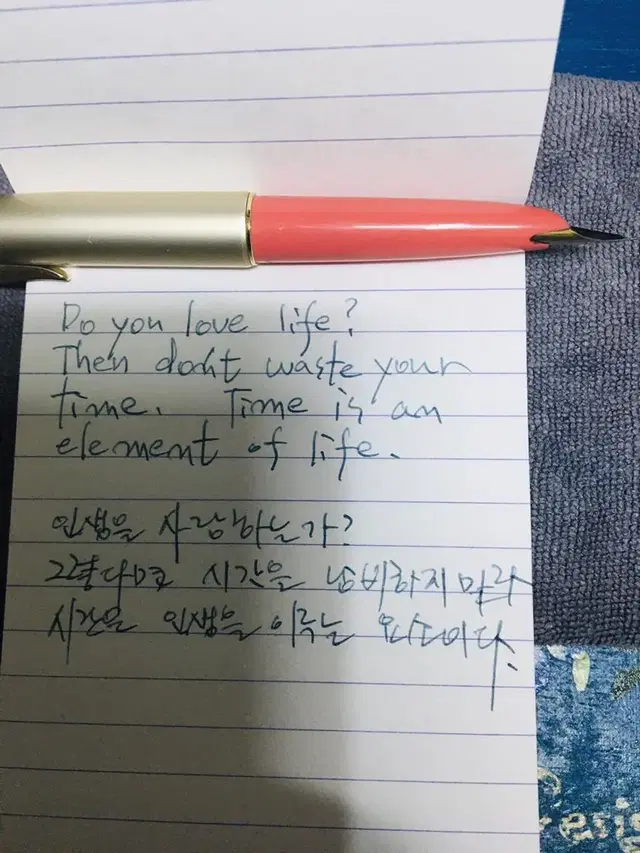 Do you love life?
Then don't waste your
time. Time is an
element of life.
인생을 사랑하는가?
그렇다면 시간을 낭비하지 마라
시간은 인생을 이루는 요소이다.